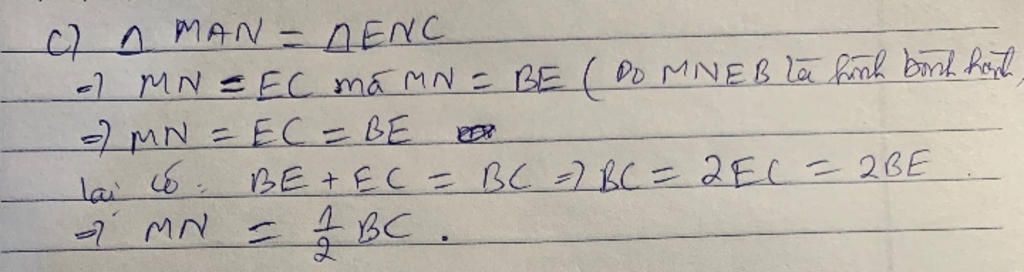 c) Δ MAN = ΔENC
=> MN = EC mà MN = BE ( Do MNEB là hình bình hành
=> MN = EC = BE
lại có : BE + EC = BC => BC = 2EC = 2BE .
=> MN = 1/2 BC .